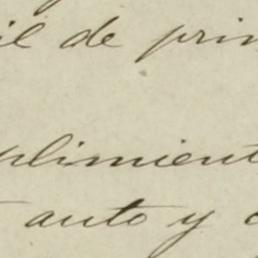 il de prin
plimient
auto y